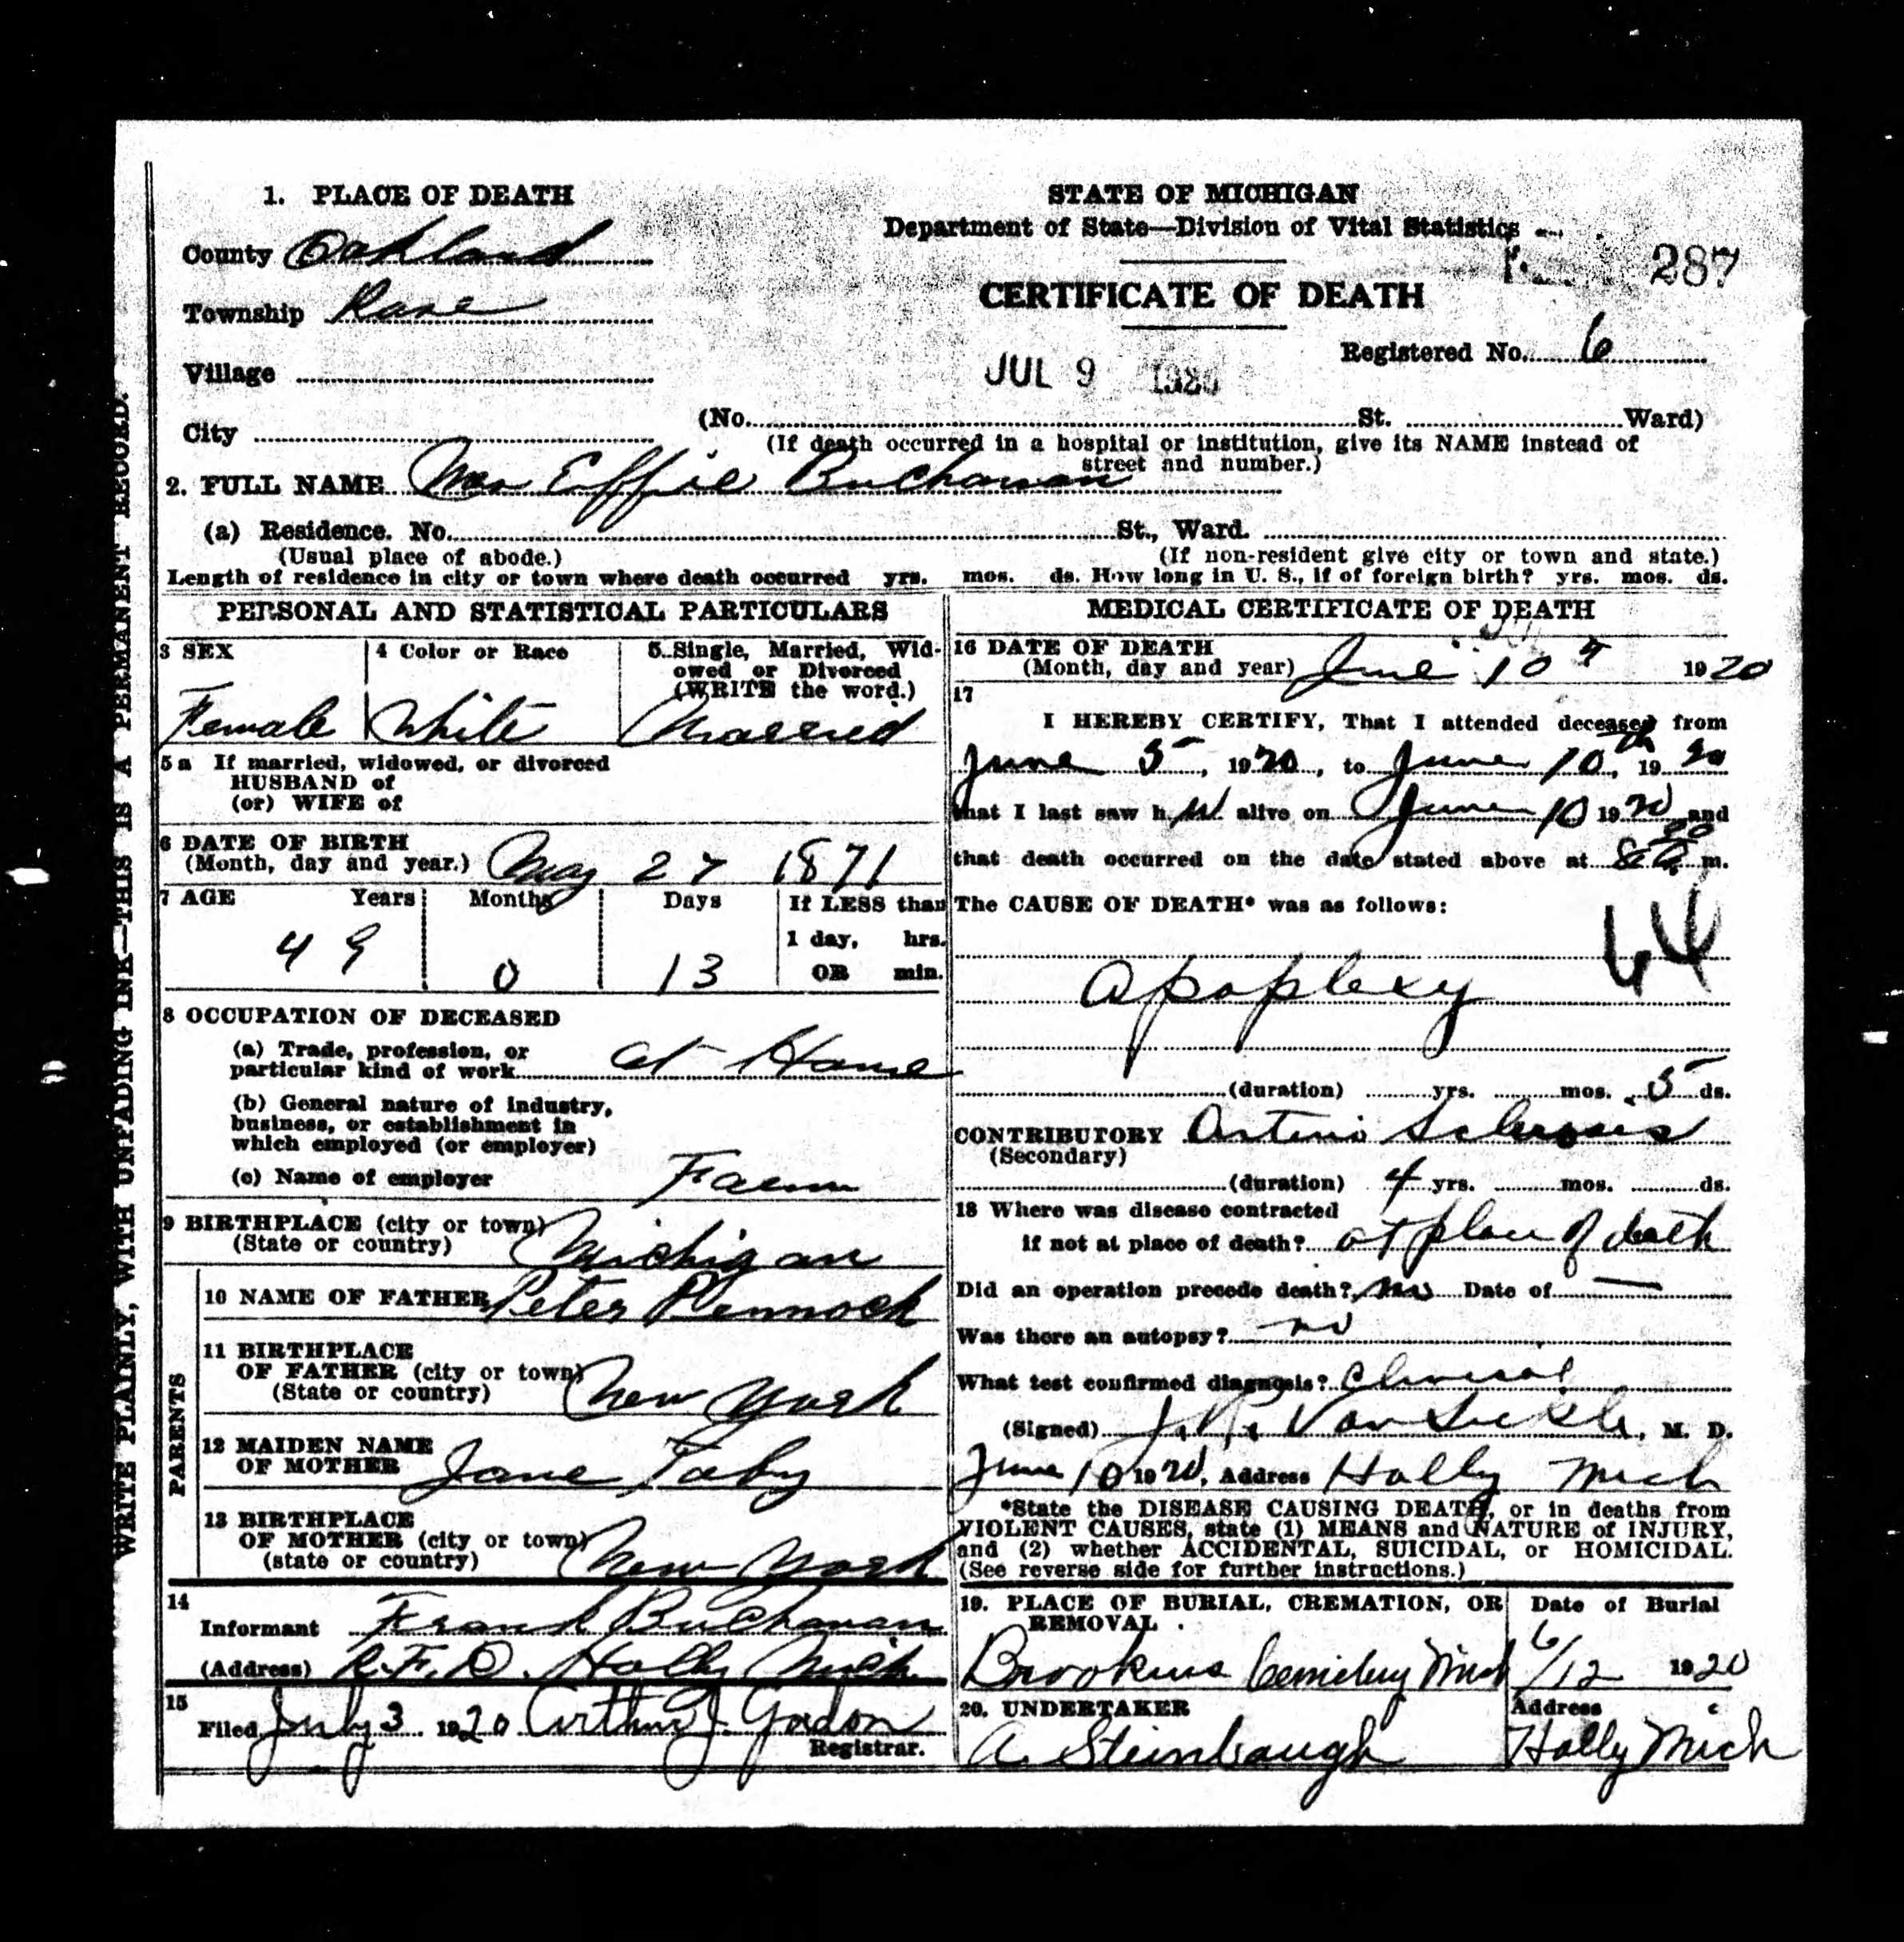 1. PLACE OF DEATH
County Oakland
Township Rose
Village
City
STATE OF MICHIGAN
Department of State—Division of Vital Statistics
287
CERTIFICATE OF DEATH
Registered No. 6
JUL 9 1920
(No. St. Ward)
(If death occurred in a hospital or institution, give its NAME instead of
street and number.)
2. FULL NAME Mrs Effie Buchanan
(a) Residence. No. St., Ward.
(Usual place of abode.) (If non-resident give city or town and state.)
Length of residence in city or town where death occurred yrs. mos. ds. How long in U. S., if of foreign birth? yrs. mos. ds.
PERSONAL AND STATISTICAL PARTICULARS
3 SEX
Female
4 Color or Race
White
5. Single, Married, Wid-
owed or Divorced
(WRITE the word.)
Married
5a If married, widowed, or divorced
HUSBAND of
(or) WIFE of
6 DATE OF BIRTH
(Month, day and year.) May 27 1871
7 AGE Years Months Days
49 0 13
If LESS than
1 day, hrs.
OR min.
8 OCCUPATION OF DECEASED
(a) Trade, profession, or
particular kind of work at Home
(b) General nature of industry,
business, or establishment in
which employed (or employer)
(c) Name of employer Farm
9 BIRTHPLACE (city or town)
(State or country) Michigan
PARENTS
10 NAME OF FATHER Peter Pennock
11 BIRTHPLACE
OF FATHER (city or town)
(State or country) New York
12 MAIDEN NAME
OF MOTHER Jane
13 BIRTHPLACE
OF MOTHER (city or town)
(state or country) New York
14
Informant Frank Buchanan
(Address) R.F.D. Holly Mich.
15
Filed July 3 1920 Arthur J. Gordon
Registrar.
MEDICAL CERTIFICATE OF DEATH
16 DATE OF DEATH
(Month, day and year) June 10 1920
17
I HEREBY CERTIFY, That I attended deceased from
June 5, 1920, to June 10th, 1920
that I last saw her alive on June 10 1920 and
that death occurred on the date stated above at 8 30 m.
The CAUSE OF DEATH* was as follows:
64
Apoplexy
(duration) yrs. mos. 5 ds.
CONTRIBUTORY Arterio Sclerosis
(Secondary)
(duration) 4 yrs. mos. ds.
18 Where was disease contracted
if not at place of death? at place of death
Did an operation precede death? no Date of —
Was there an autopsy? no
What test confirmed diagnosis? Clinical
(Signed) Van Sickle, M. D.
June 10 1920, Address Holly Mich
*State the DISEASE CAUSING DEATH, or in deaths from
VIOLENT CAUSES, state (1) MEANS and NATURE of INJURY,
and (2) whether ACCIDENTAL, SUICIDAL, or HOMICIDAL.
(See reverse side for further instructions.)
19. PLACE OF BURIAL, CREMATION, OR
REMOVAL.
Brookins Cemetery Mich
Date of Burial
6/12 1920
20. UNDERTAKER
A. Steinbaugh
Address
Holly Mich
WRITE PLAINLY, WITH UNFADING INK—THIS IS A PERMANENT RECORD.